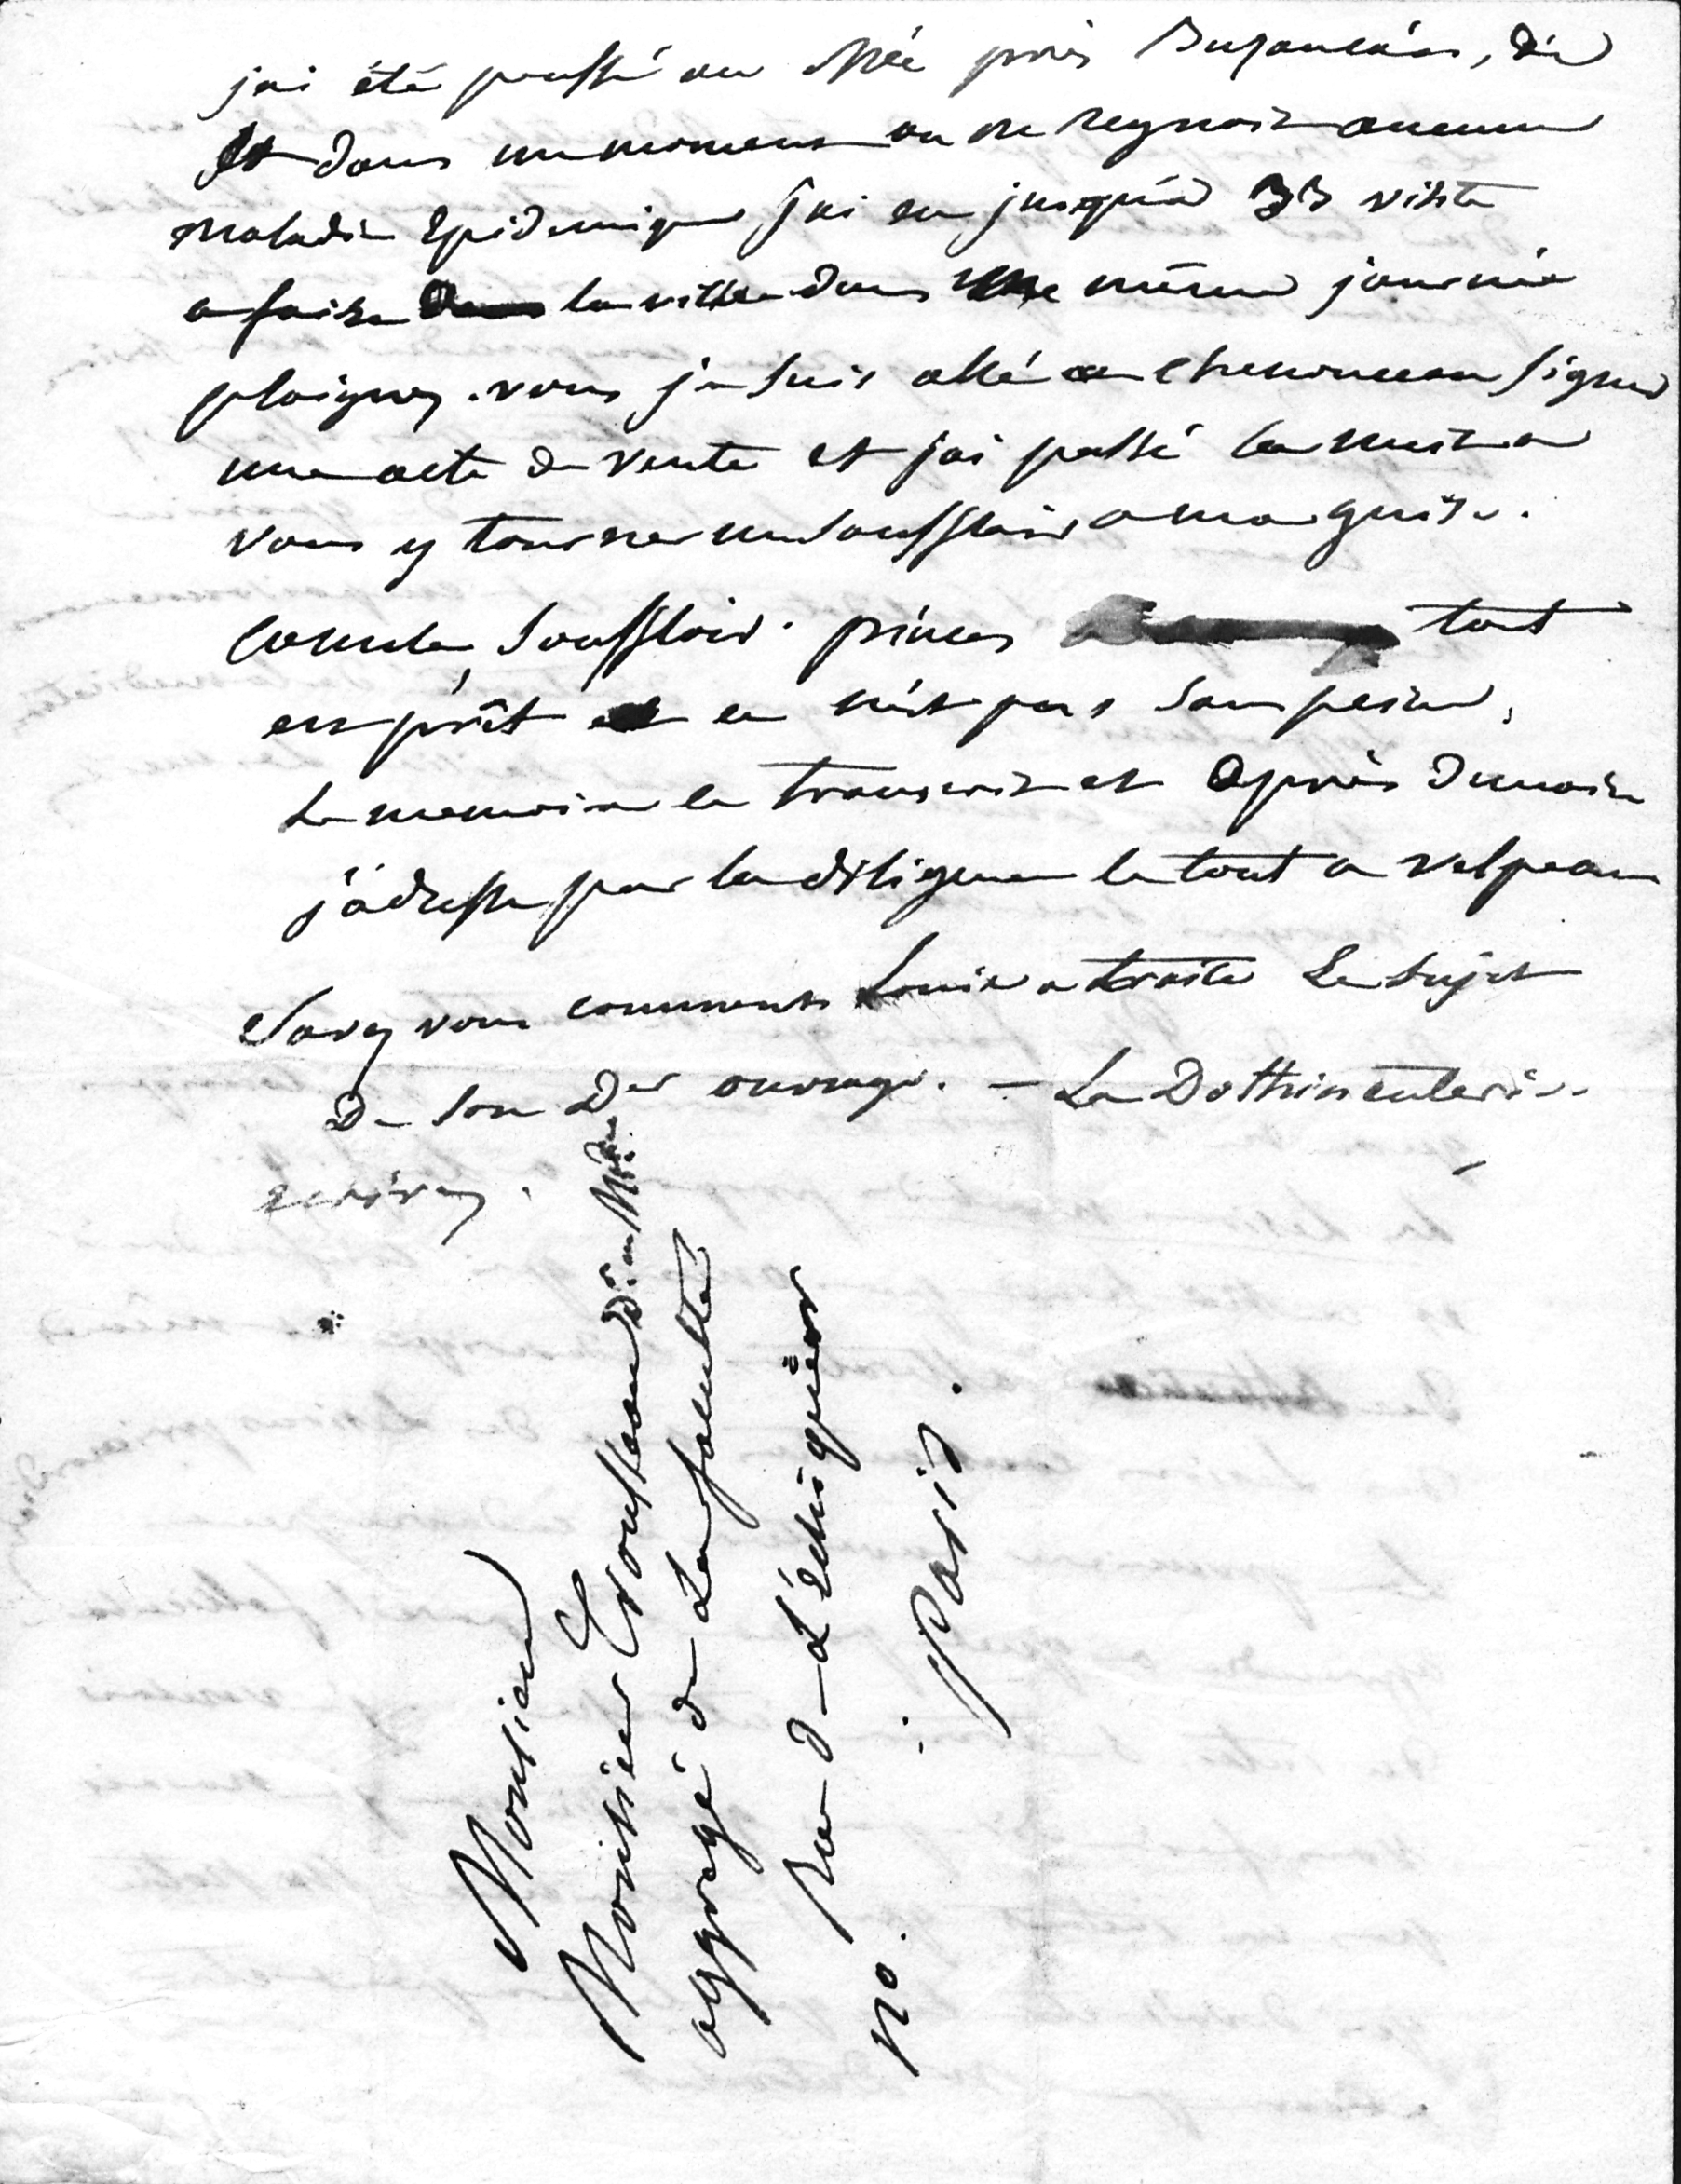 j'ai été poussé au Mée près Buzancais, 
et dans un moment ou ne regnoit aucune
maladie Epidemique j'ai eu jusqu'à 33 visites
a faire la ville dans une même journée
plaignez-vous je suis allé a chenonceau signer
une acte de vente et j'ai passé la nuit a
vous y tourner un souffloir a ma guise.
souffloir. pinces tout
est prêt et ce n'est pas sans peine,
Le memoire se transcrit et après demain
j'adresse par la diligence le tout a velpeau
Savez vous comment Louis a traité Le sujet
De son Der ouvrage. — La Dothinenterie.
ecrivez.
Monsieur
Monsieur Trousseau Dr. en Mdne
aggregé de La faculté
No. Rue De L'échiquier
Paris.